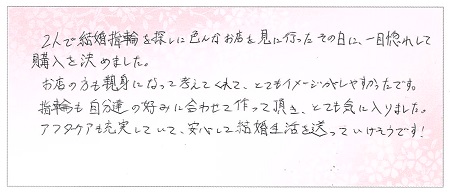 2人で結婚指輪を探しに色んなお店を見に行ったその日に、一目惚れして
購入を決めました。
お店の方も親身になって考えてくれて、とてもイメージがしやすかったです。
指輪も自分達の好みに合わせて作って頂き、とても気に入りました。
アフタケアも充実していて、安心して結婚生活を送っていけそうです!